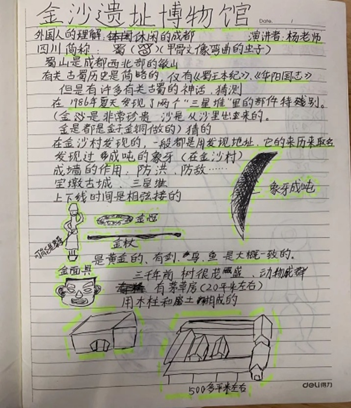 金沙遗址博物馆
Date. /
外国人的理解 休闲的成都 演讲者:杨老师
四川简称 蜀 (甲骨文像弯曲的虫子)
蜀山是成都西北部的岷山
有关古蜀历史是简略的,仅有《蜀王本纪》、《华阳国志》
但是有许多有关古蜀的神话,猜测
在1986年夏天发现了两个"三星堆"里的那件特残别。
(金沙是非常珍贵,沙是从沙里出来的。
金是都是金子金铜做的) 猜的
在金沙村发现的,一般都是用发现地址,它的来历来取名
发现过 成吨的象牙 (在金沙村)
成墙的作用,防洪,防敌……
宝墩古城,三星堆 象牙成吨
上下线时间是相弦接的
金冠
金杖
是黄金的,有剑,鸟,鱼是大概一致的。
金面具 三千年前 树很茂盛,动物成群
有茅草房(20平米左右)
用木柱和 土 构成的
500多平米左右
deli得力